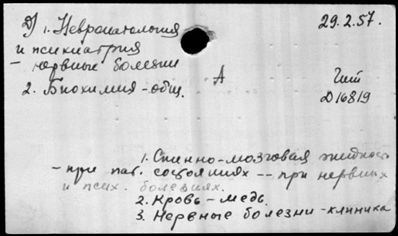 D) 1. Невропатология 29.2.57.
и психиатрия
- нервные болезни
2. Биохимия - общ. А Чит
D16819
1. Спинно-мозговая жидкость
- при пат. состояниях -- при нервных
и псих. болезнях.
2. Кровь - медь.
3. Нервные болезни - клиника